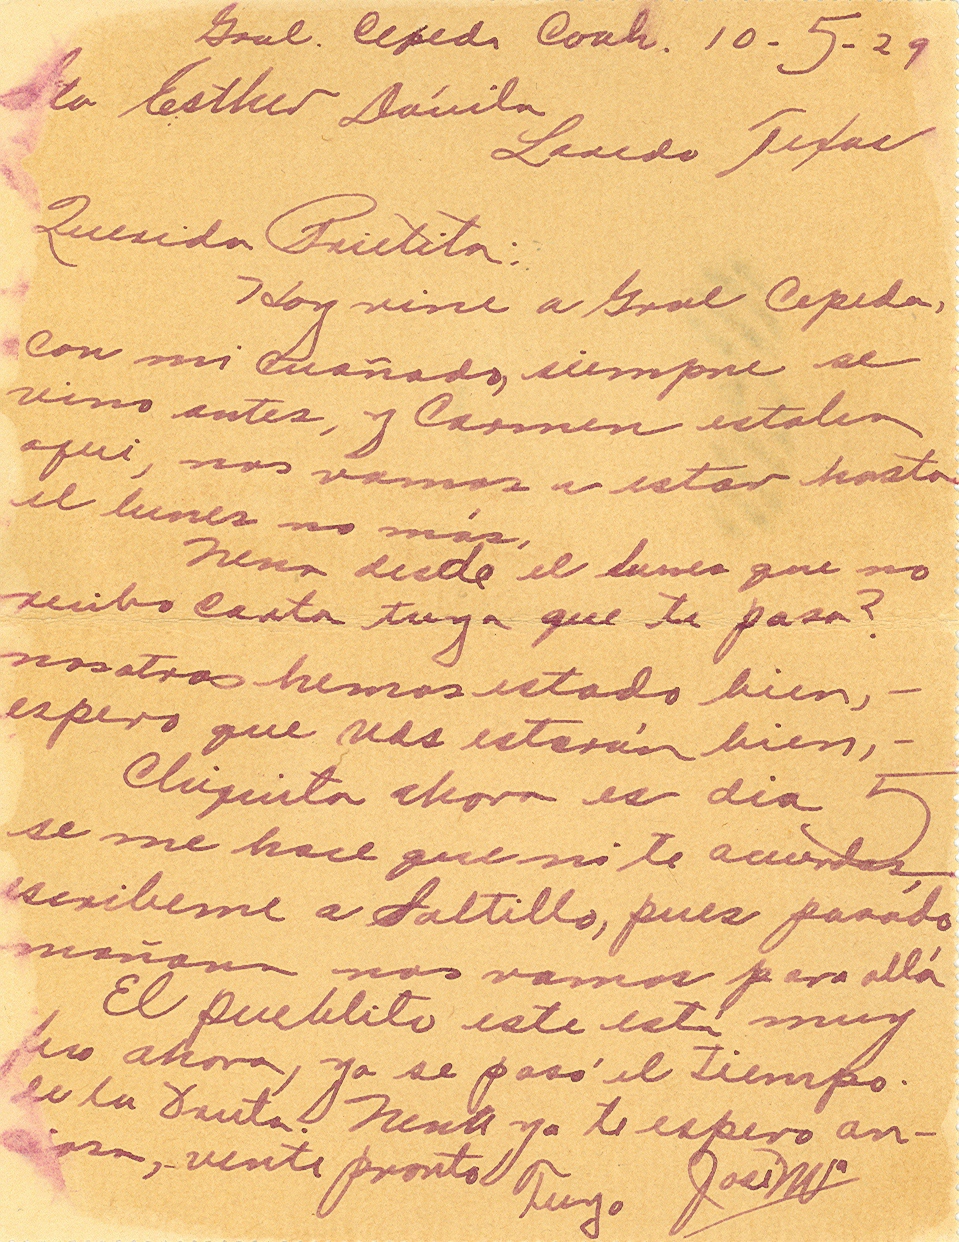 Gral. Cepeda Coah. 10-5-29
Sta Esther Dávila
Laredo Texas
Querida Prietita:
Hoy vine a Gral Cepeda,
con mi cuañado, siempre se
vino antes, y Carmen estaba
aqui, nos vamos a estar hasta
el lunes no más,
Nena desde el lunes que no
recibo carta tuya que te pasa?
nosotros hemos estado bien,-
espero que Uds estarán bien,-
Chiquita ahora es dia 5
se me hace que ni te acuerdas,
escribeme a Saltillo, pues pasado
mañana nos vamos para allá
El pueblito este está muy
feo ahora, ya se pasó el tiempo.
de la fruta. Nena ya te espero an-
siosa,- vente pronto
Tuyo José Ma